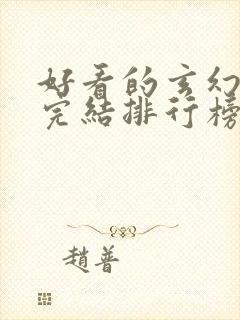 好看的玄幻
完結排行榜
趙普